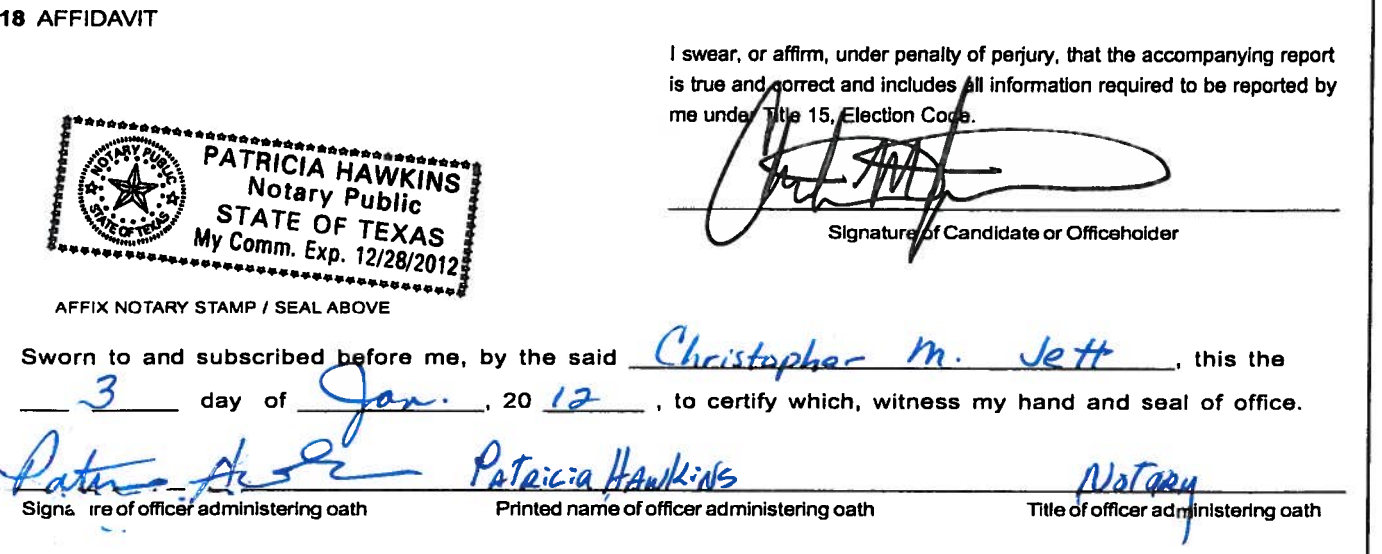 18 AFFIDAVIT
I swear, or affirm, under penalty of perjury, that the accompanying report
is true and correct and includes all information required to be reported by
me under Title 15, Election Code.
NOTARY PUBLIC
STATE OF TEXAS
PATRICIA HAWKINS
Notary Public
STATE OF TEXAS
My Comm. Exp. 12/28/2012
Signature of Candidate or Officeholder
AFFIX NOTARY STAMP / SEAL ABOVE
Sworn to and subscribed before me, by the said Christopher M. Jett, this the
3 day of Jan., 20 12, to certify which, witness my hand and seal of office.
Patricia Hawkins PATRICIA HAWKINS NOTARY
Signature of officer administering oath Printed name of officer administering oath Title of officer administering oath